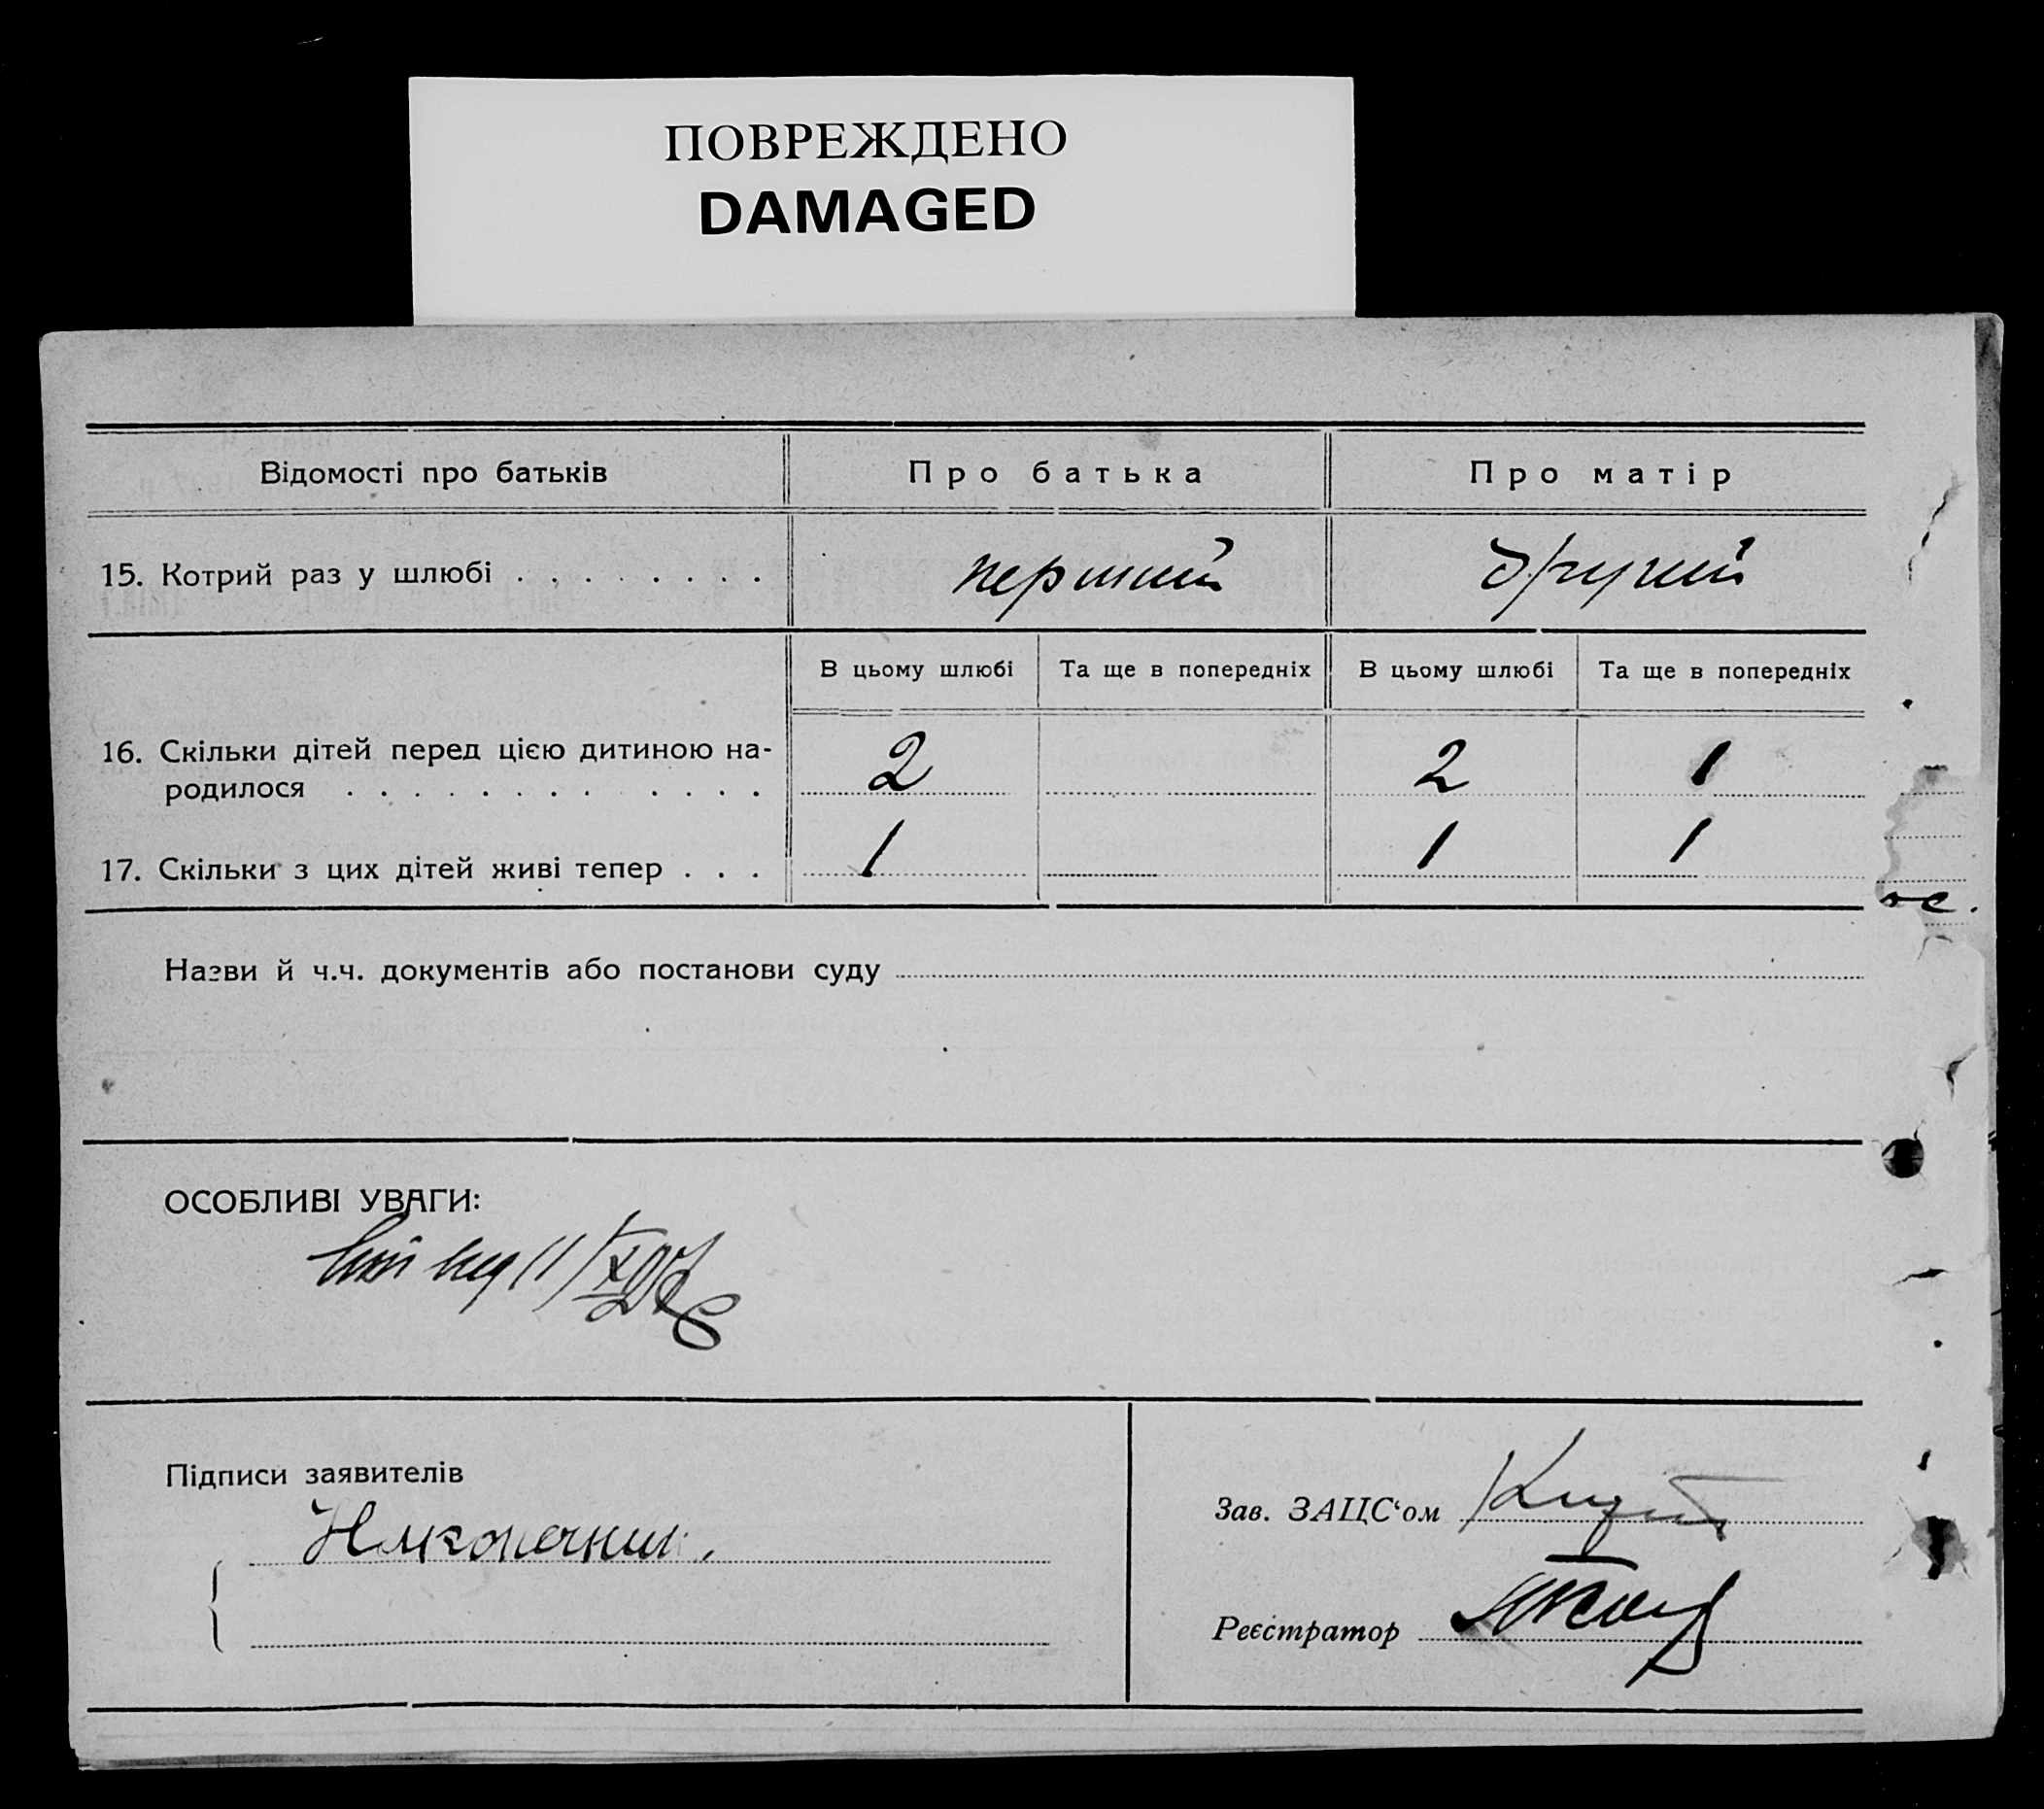 ПОВРЕЖДЕНО
DAMAGED
Відомості про батьків
Про батька
Про матір
15. Котрий раз у шлюбі . . . . . . . .
перший
другий
В цьому шлюбі
Та ще в попередніх
В цьому шлюбі
Та ще в попередніх
16. Скільки дітей перед цією дитиною на-
родилося . . . . . . . . . . . . .
2
2
1
17. Скільки з цих дітей живі тепер . . .
1
1
1
Назви й ч.ч. документів або постанови суду
ОСОБЛИВІ УВАГИ:
Підписи заявителів
Зав. ЗАЦС‘ом
Реєстратор